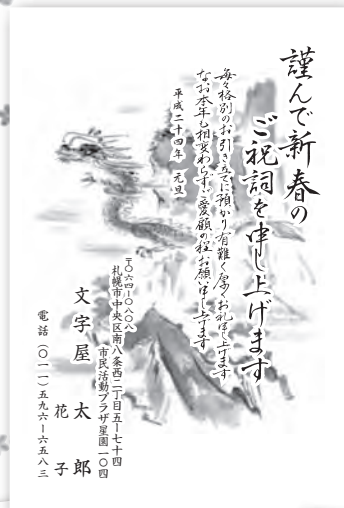 謹んで新春の
ご祝詞を申し上げます
毎々格別のお引き立てに預かり有難く厚くお礼申し上げます
なお本年も相変わらずご愛顧の程お願い申し上げます
平成二十四年 元旦
〒〇六四-〇八〇八
札幌市中央区南八条西二丁目五-七十四
市民活動プラザ星園一〇四
文字屋 太郎
花子
電話(〇一一)五九六-六五八三